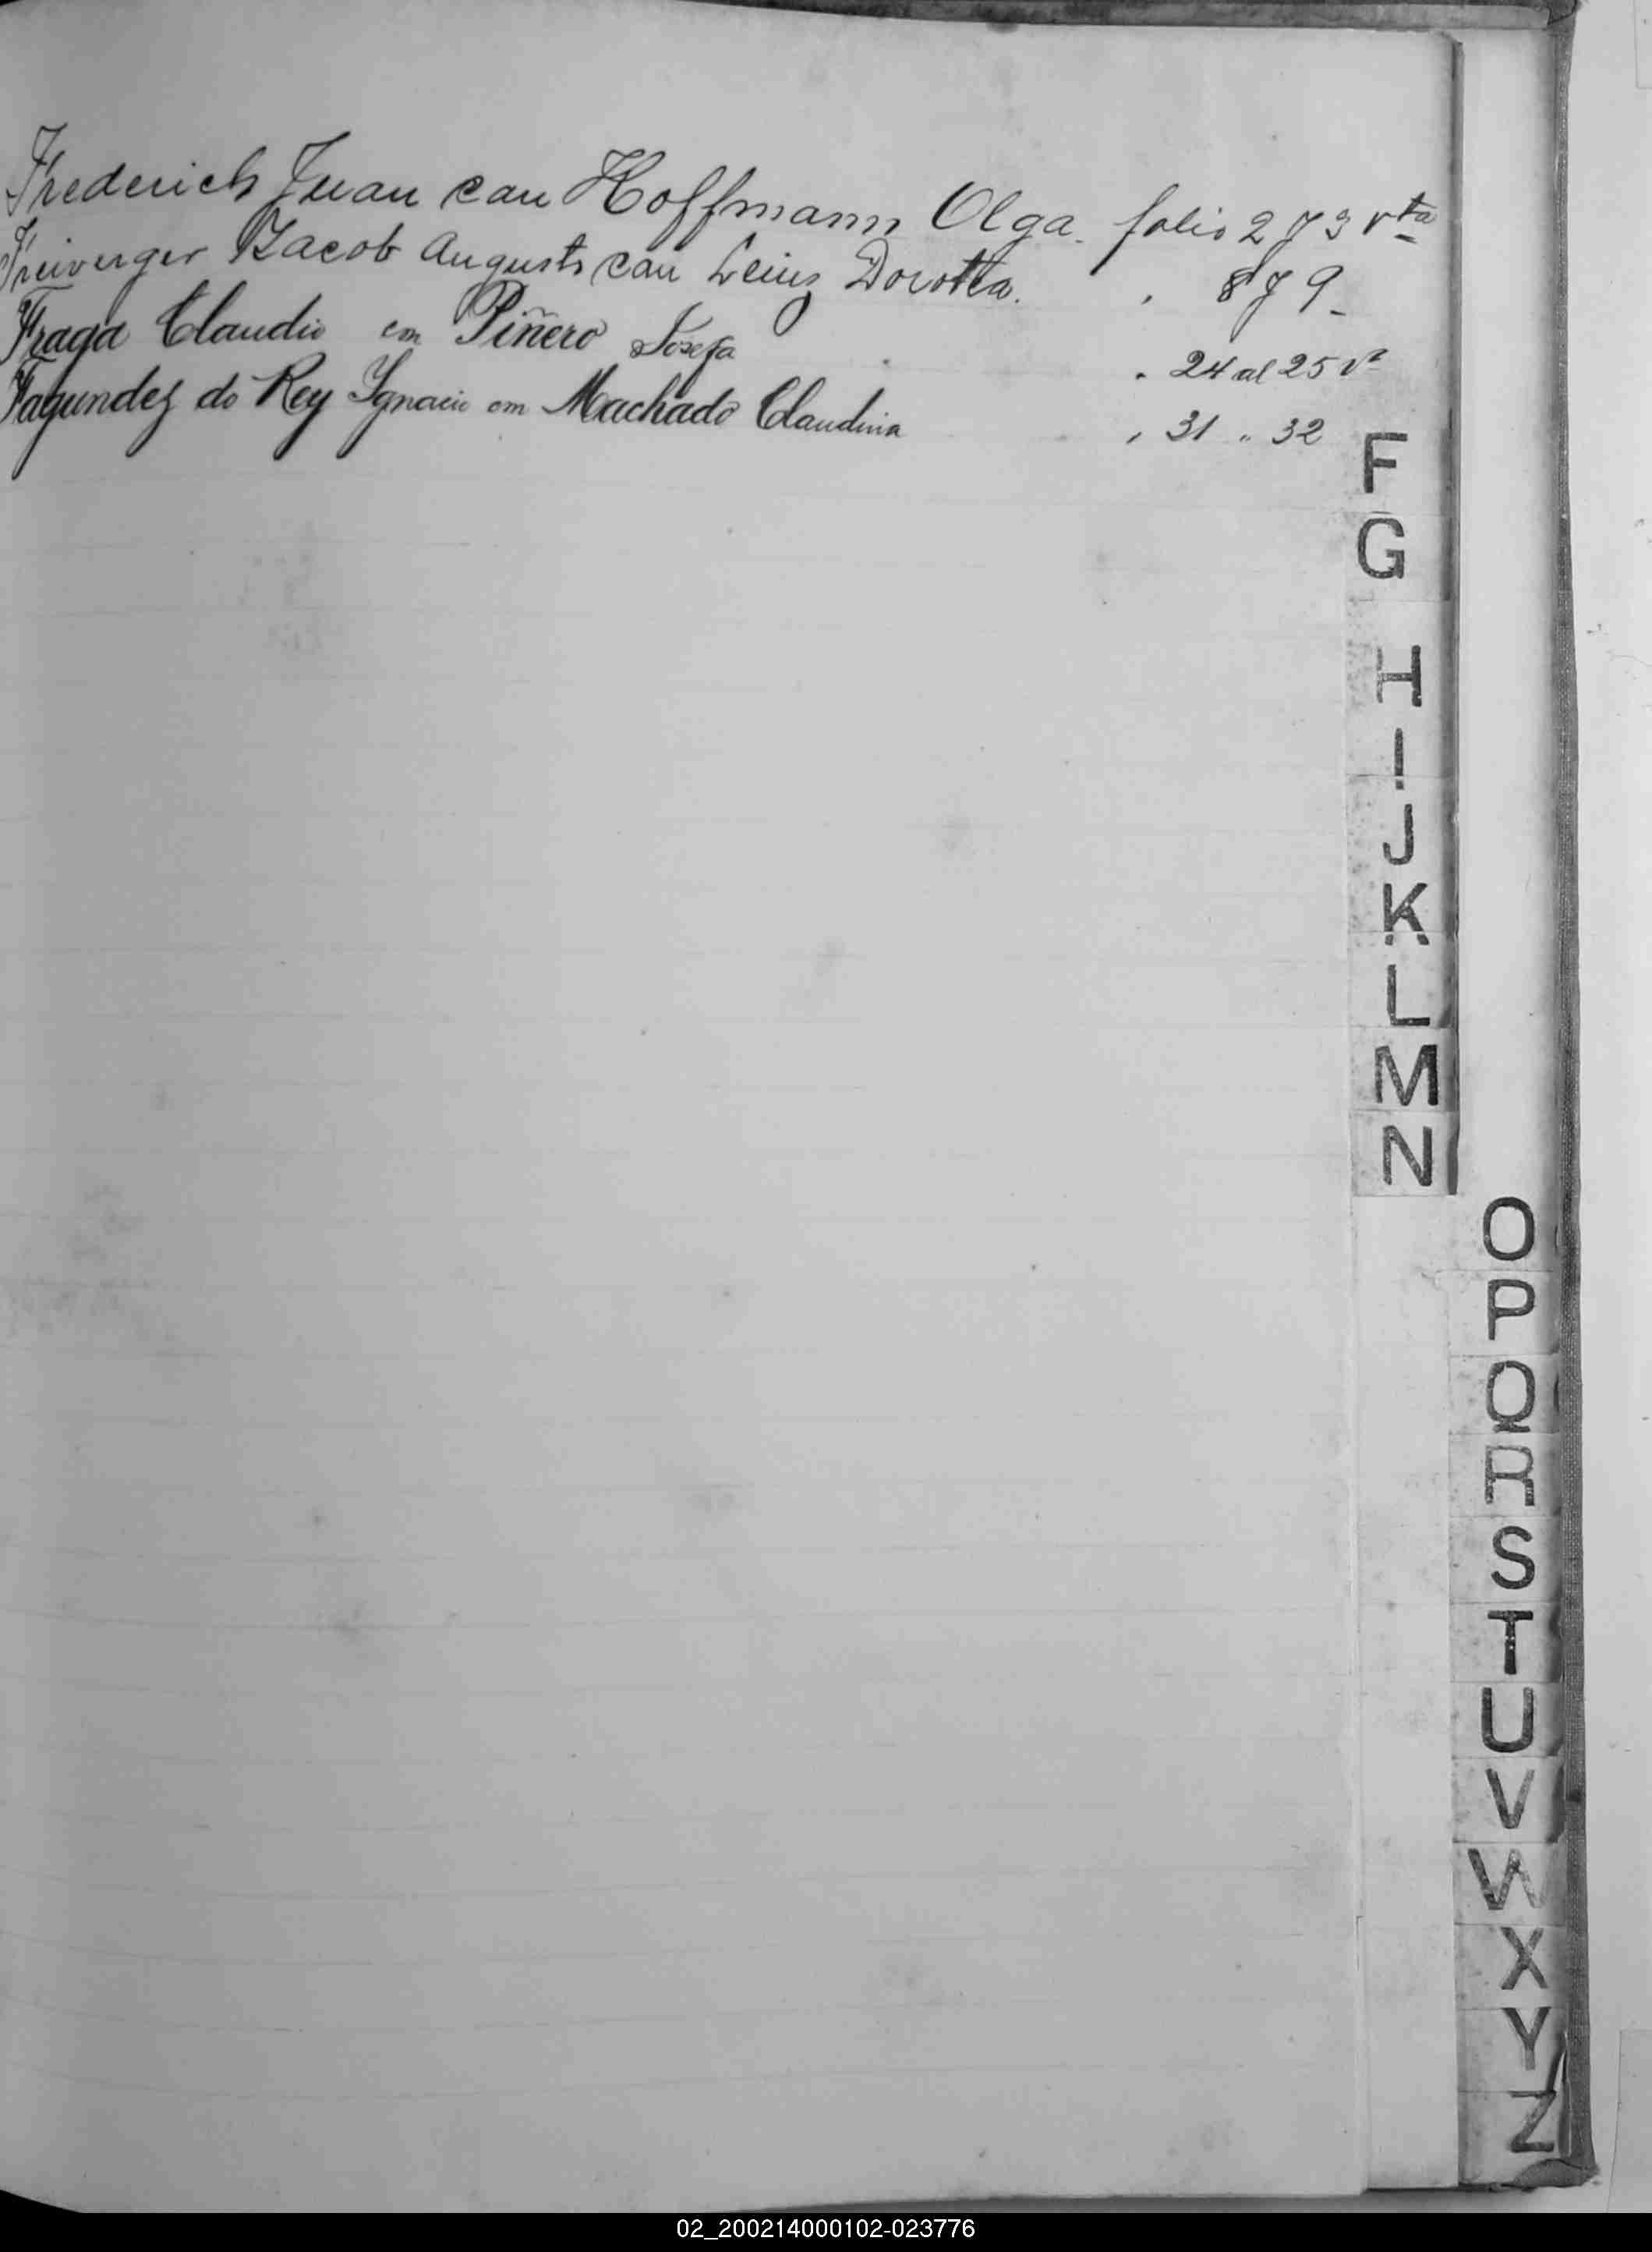 Frederich Juan con Hoffmann Olga. folio 273 vta
Freiverger Jacob Augusto con Leius Dorotea. " 8 y 9
Fraga Claudio con Piñero Josefa " 24 al 25 vta
Fagundez do Rey Ygnacio con Machado Claudina " 31 " 32
F
G
H
I
J
K
L
M
N
O
P
Q
R
S
T
U
V
W
X
Y
Z
02_200214000102-023776